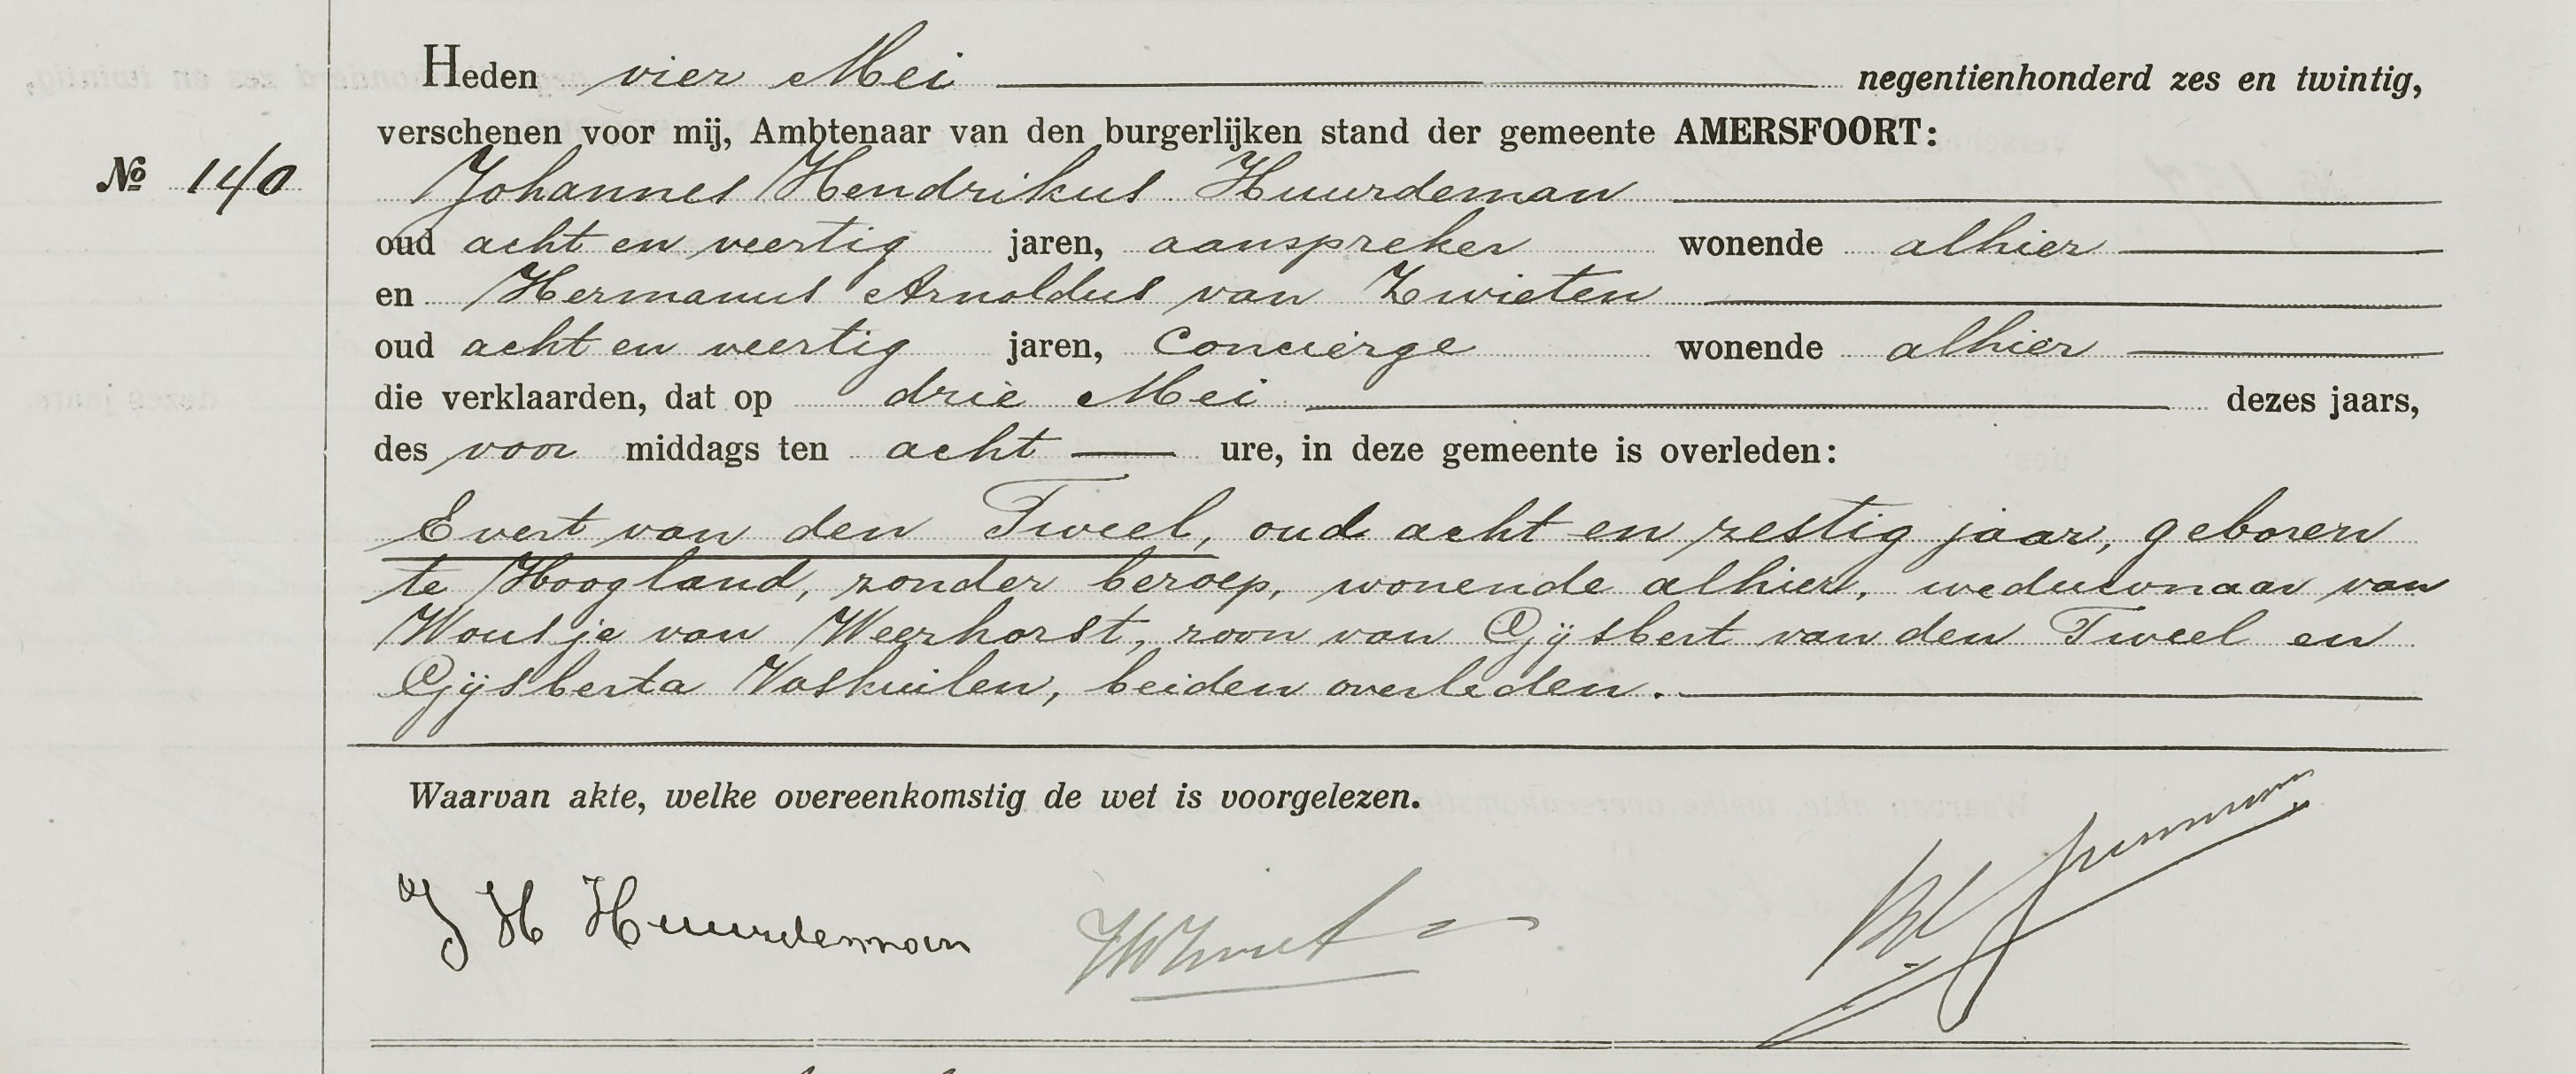 Heden vier Mei negentienhonderd zes en twintig,
verschenen voor mij, Ambtenaar van den burgerlijken stand der gemeente AMERSFOORT:
№ 140
Johannes Hendrikus Huurdeman
oud acht en veertig jaren, aanspreker wonende alhier
en Hermanus Arnoldus van Zwieten
oud acht en veertig jaren, concierge wonende alhier
die verklaarden, dat op drie Mei dezes jaars,
des voor middags ten acht ure, in deze gemeente is overleden:
Evert van den Tweel, oud acht en zestig jaar, geboren
te Hoogland, zonder beroep, wonende alhier, weduwnaar van
Wousje van Weerhorst, zoon van Gijsbert van den Tweel en
Gijsberta Voskuilen, beiden overleden.
Waarvan akte, welke overeenkomstig de wet is voorgelezen.
J H Huurdeman